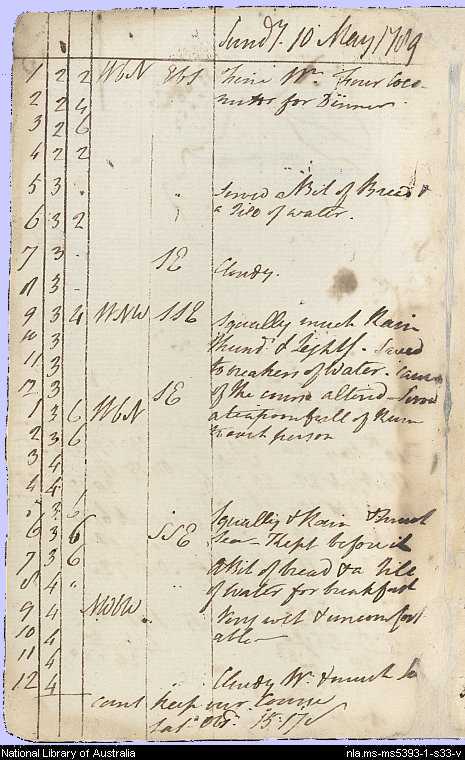 Sundy. 10 May 1789
1 2 2 WbN EbS Fine Wr. Four Coco-
2 2 4 nutts for Dinner
3 2 6
4 2 2
5 3 . " Served a Bit of Bread &
6 3 2 " a Gill of water.
7 3 - SE Cloudy.
8 3 -
9 3 4 WNW SSE Squally much Rain
10 3 Thundr. & Lightg. Saved
11 3 breakers of water.
12 3 SE of the course altered - Serv'd
1 3 6 WbN a teaspoonfull of Rum
2 3 6 to each person
3 4
4 4
5 3 6 Squally & Rain & much
6 3 6 SSE Sea - Kept before it
7 3 6 A Bit of bread & a Gill
8 4 " of water for breakfast
9 4 NWbW Very wet & uncomfort
10 4 able -
11 4
12 4 Cloudy Wr. & much Sea
cant keep our Course
Latd. Obs.
National Library of Australia nla.ms-ms5393-1-s33-v